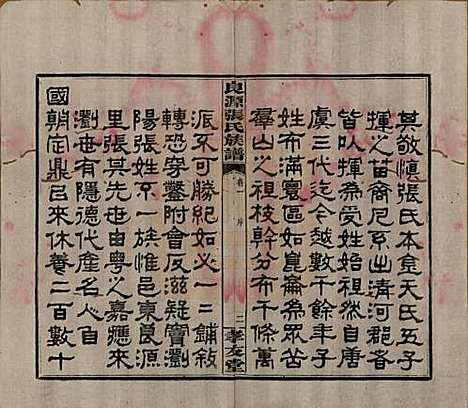 其敬慎張氏本金天氏五子
揮之苗裔凡系出清河郡者
皆以揮為受姓始祖自唐
虞三代迄今越數千餘年子
姓布滿寰區如崑崙為眾
羣山之祖枝幹分布千條萬
良源張氏族譜
卷一
序
二
孝友堂
派不可勝紀如必一二鋪敍
轉恐穿鑿附會反滋疑竇瀏
陽張姓不一族惟邑東良源
里張其先世由粵之嘉應來
瀏世有隱德代產名人自
國朝定鼎已來休養二百數十